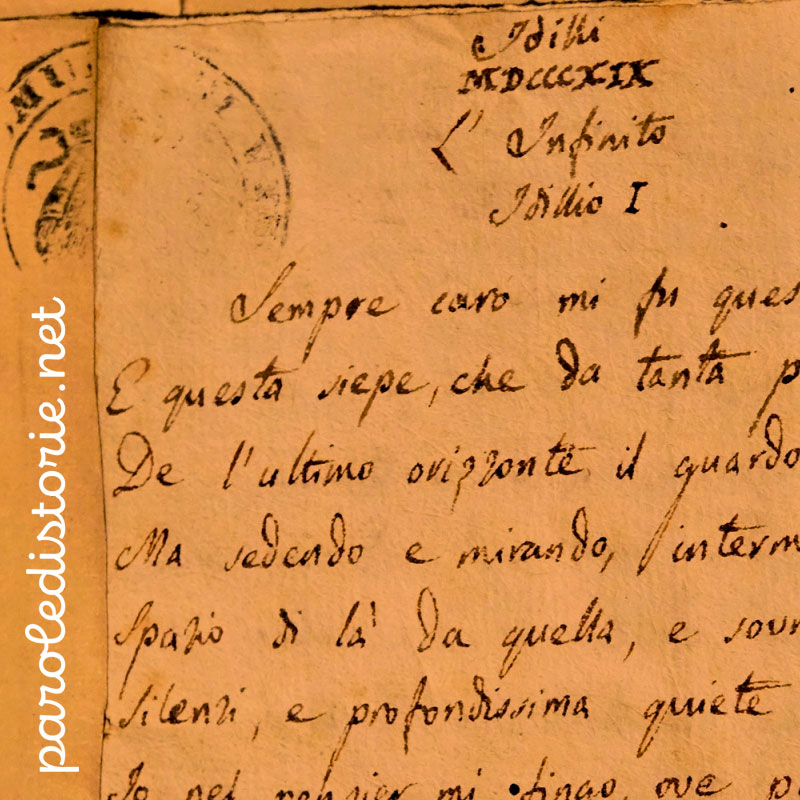 Idilli
MDCCCXIX
L' Infinito
Idillio I
Sempre caro mi fu ques
E questa siepe, che da tanta p
De l'ultimo orizzonte il guardo
Ma sedendo e mirando, interm
Spazio di là da quella, e sovr
Silenzi, e profondissima quiete
Io nel pensier mi fingo, ove p
paroledistorie.net